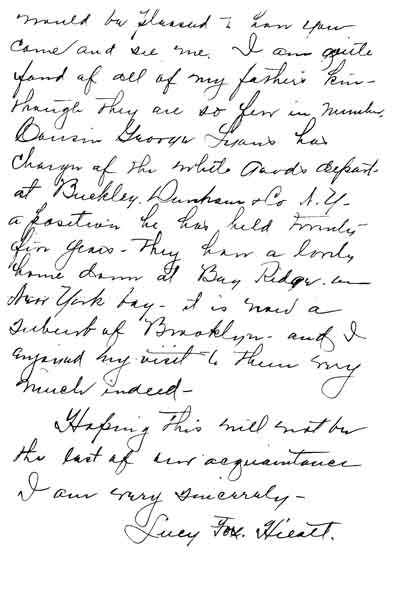 would be pleased to have you
come and see me. I am quite
fond of all of my father's kin-
though they are so few in number.
Cousin George Lyons has
charge of the white goods depart-
at Buckley, Dunham & Co N.Y-
a position he has held twenty
five years- They have a lovely
home down at Bay Ridge- on
New York bay- it is now a
suburb of Brooklyn- and I
enjoyed my visit to them very
much indeed-
Hoping this will not be
the last of our acquaintance
I am very sincerely-
Lucy Fox Hieatt.